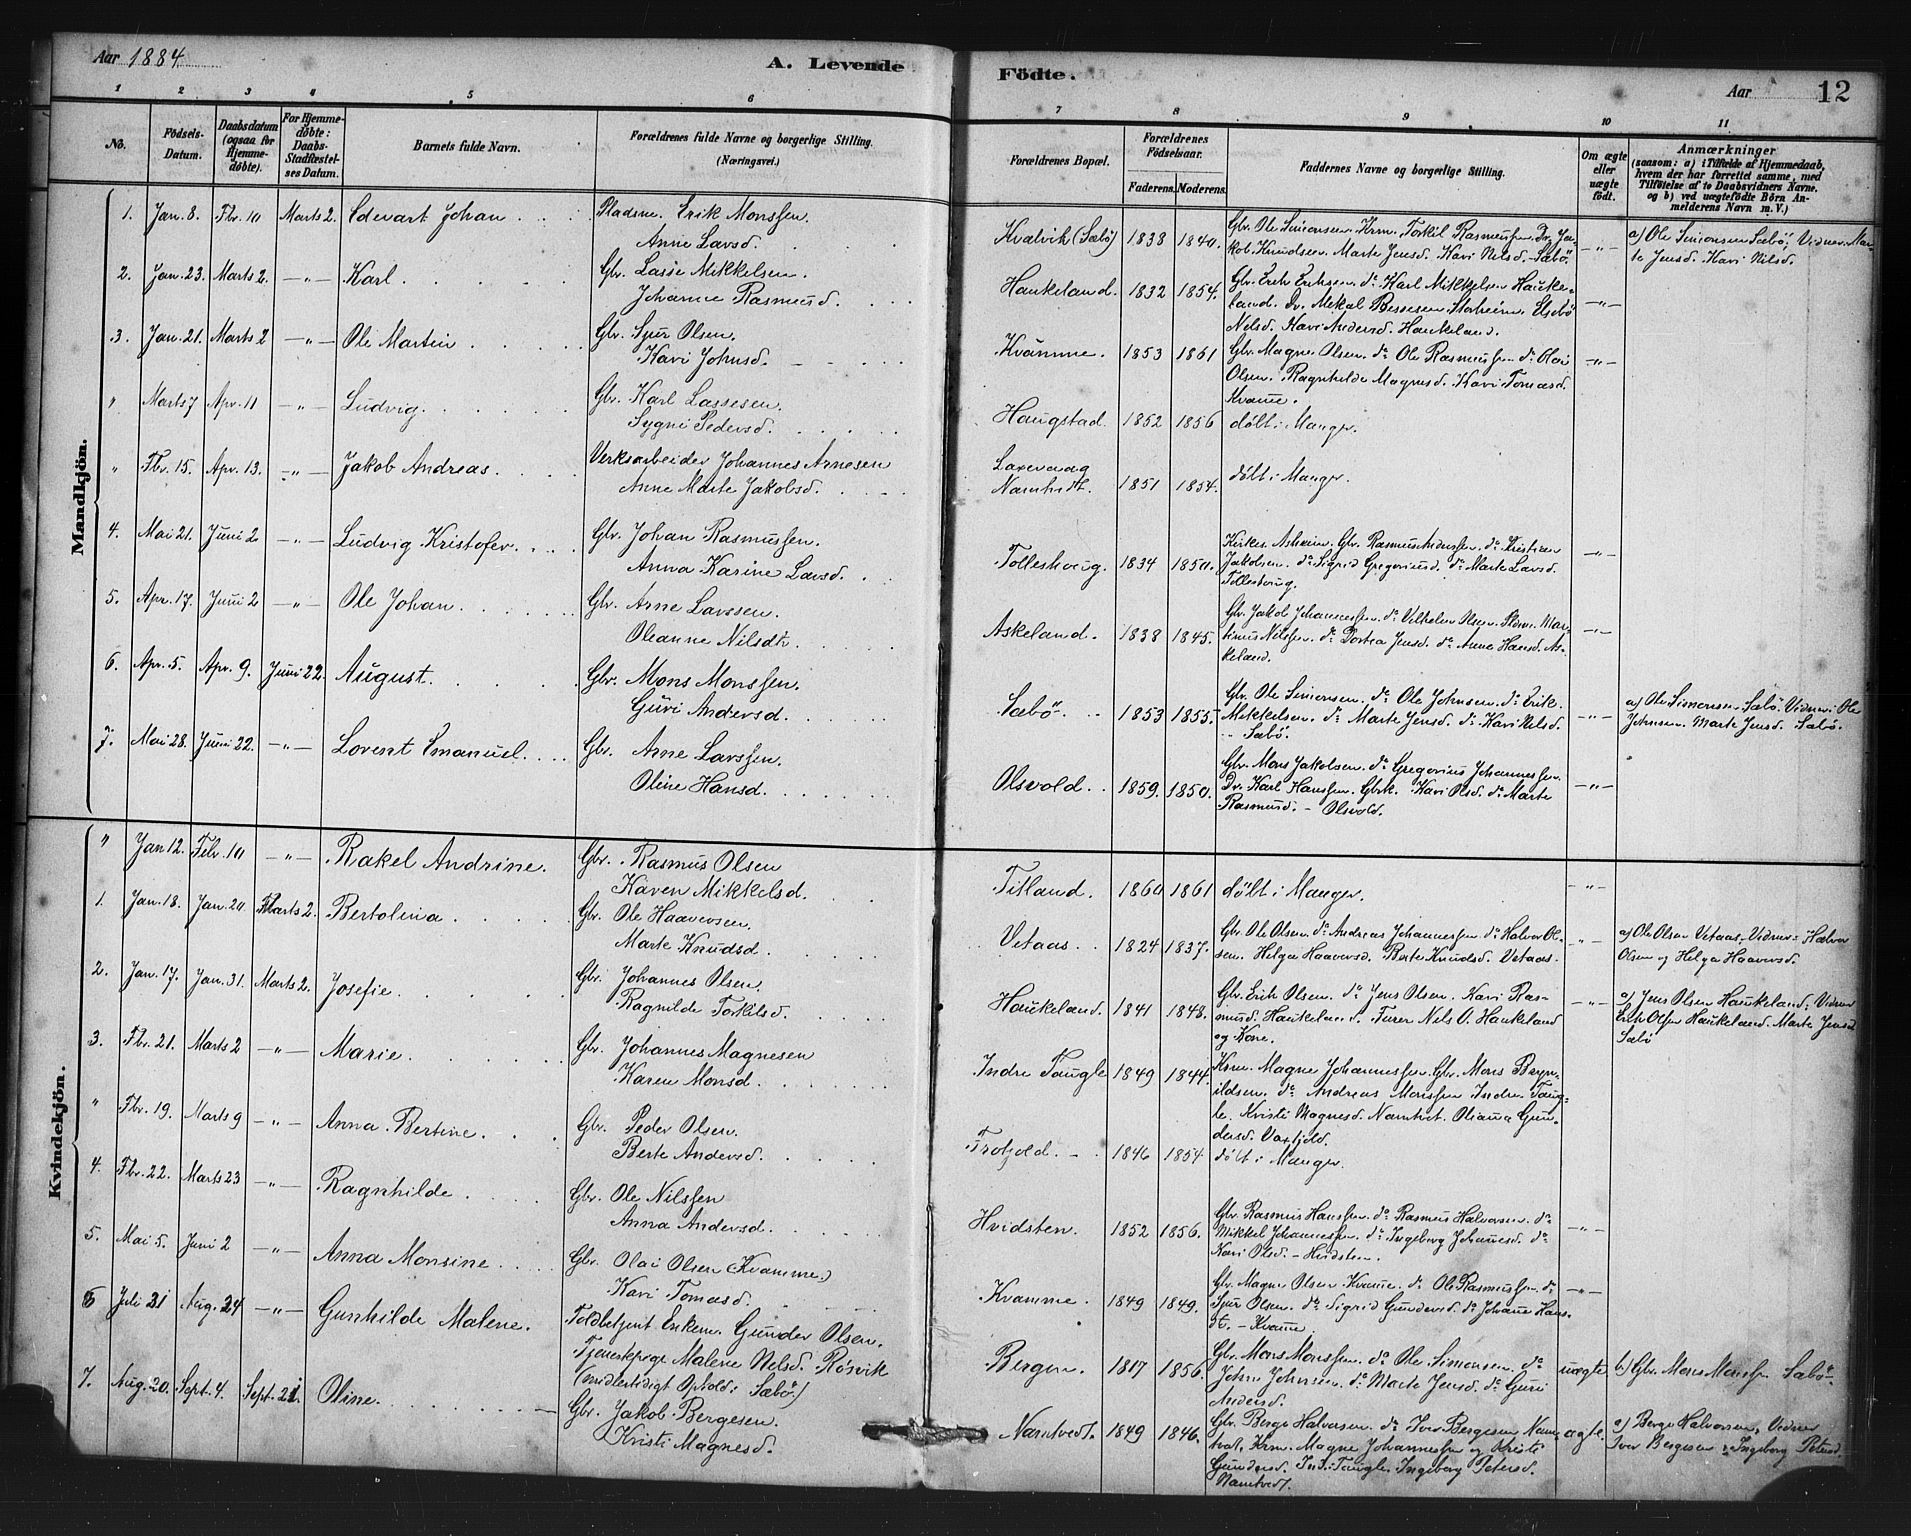 Aar 1884
A. Levende Födte.
Aar 12
1 2 3 4 5 6 7 8 9 10 11
No.
Födsels-Datum.
Daabsdatum (ogsaa for Hjemme-døbte).
For Hjemme-døbte: Daabs-Stadfæstel-ses Datum.
Barnets fulde Navn.
Forældrenes fulde Navne og borgerlige Stilling. (Næringsvei.)
Forældrenes Bopæl.
Forældrenes Födselsaar.
Faderens. Moderens.
Faddernes Navne og borgerlige Stilling.
Om ægte eller uægte födt.
Anmærkninger
(saasom: a) i Tilfælde af Hjemmedaab, hvem der har forrettet samme, med Tilföielse af to Daabsvidners Navne. og b) ved uægtefödte Börn Anmelderens Navn m. V.)
Mandkjön.
1. Jan. 8. Fbr. 10 Marts 2. Edevart Johan Pladsm. Erik Monssen
Anne Larsd.
Kvalvik (Sæbö) 1838 1840. Gbr. Ole Simonsen. Krm. Torkil Rasmussen. Dr. Ja-
kob Knudsen. Marte Jensd. Kari Nilsd. - Sæbö
a) Ole Simonsen Sæbö, Vidner Mar-
te Jensd. Kari Nilsd.
2. Jan. 23. Marts 2. —"— Karl. Gbr. Lasse Mikkelsen.
Johanne Rasmusd.
Haukeland. 1832 1854. Gbr. Erik Eriksen. do Karl Mikkelsen Hauke-
land. Dr. Mekal Bessesen Storheim. Elsebö
Nelsd. Kari Andersd. Haukeland.
3. Jan. 21. Marts 2 —"— Ole Martin Gbr. Sjur Olsen.
Kari Johnsd.
Kvamme. 1853 1861 Gbr. Magne Olsen. do Ole Rasmussen. do Olai
Olsen. Ragnhilde Magnesd. Kari Tomasd.
Kvamme.
" Marts 7 Apr. 11 —"— Ludvig. Gbr. Karl Lassesen.
Sygni Pedersd.
Haugstad. 1852 1856 døbt i Manger.
" Fbr. 15. Apr. 13. —"— Jakob Andreas. Verksarbeider Johannes Arnesen
Anne Marte Jakobsd.
Laxevaag
1851 1854. døbt i Manger.
4. Mai 21. Juni 2 —"— Ludvig Kristofer. Gbr. Johan Rasmussen.
Anna Karine Larsd.
1834 1850.
Gbr. Rasmus Anderssen. do Kristian
Jakobsen. do Sigrid Gregoriusd. do Marte Larsd.
5. Apr. 17. Juni 2 —"— Ole Johan Gbr. Arne Larssen.
Oleanne Nilsdtr.
Askeland. 1838 1845. Gbr. Jakob Johannessen. do Vilhelm Olsen. Mar-
tinus Nilssen. do Dortea Jensd. do Anne Hansd. As-
keland.
6. Apr. 5. Apr. 9. Juni 22. August. Gbr. Mons Monssen.
Guri Andersd.
Sæbö. 1853 1855. Gbr. Ole Simonsen. do Ole Johnsen. do Erik
Mikkelsen. do Marte Jensd. do Kari Nilsd.
Sæbö.
a) Ole Simonsen Sæbö. Vidner Ole
Johnsen. Marte Jensd. Sæbö.
7. Mai 28. Juni 22. —"— Lorent Emanuel. Gbr. Arne Larssen.
Oline Hansd.
Olsvold. 1859. 1850. Gbr. Mons Jakobsen. do Gregorius Johannessen.
Dr. Karl Hanssen. Gbrk. Kari Olsd. do Marte
Rasmusd. - Olsvold.
Kvindekjön.
" Jan 12. Febr. 10 —"— Rakel Andrine. Gbr. Rasmus Olsen
Karen Mikkelsd.
Titland. 1860 1861 døbt i Manger.
1. Jan. 18. Jan. 20 Marts 2. Bertolina Gbr. Ole Haaversen.
Marte Knudsd.
Vetaas. 1824 1837. Gbr. Ole Olsen. do Andreas Johannessen. do Halvor Ol-
sen. Helga Haaversd. Berte Knudsd. Vetaas.
a) Ole Olsen Vetaas. Vidner: Halvor
Olsen og Helga Haaversd.
2. Jan. 17. Jan. 31. Marts 2. Josefie. Gbr. Johannes Olsen.
Ragnilde Torkilsd.
Haukeland. 1841 1848. Gbr. Erik Olsen. do Jens Olsen. Kari Ras-
musd. Haukeland. Furer Nils O. Haukeland
og Kone.
a) Jens Olsen Haukeland. Vidner
Erik Olsen Haukeland. Marte Jensd
Sæbö
3. Fbr. 21. Marts 2 —"— Marie. Gbr. Johannes Magnesen
Karen Monsd.
Indre Taugle 1849 1844. Krm. Magne Johannessen. Gbr. Mons Bryn-
ildsen. do Andreas Monssen Indre Taug-
le. Kristi Magnesd. Namtvet. Oliana Gun-
dersd.
" Fbr. 19. Marts 9 —"— Anna Bertine. Gbr. Peder Olsen.
Berte Andersd.
1846 1854. døbt i Manger.
4. Fbr. 22. Marts 23 —"— Ragnhilde Gbr. Ole Nilssen
Anna Andersd.
Hvidsten. 1852 1856. Gbr. Rasmus Hanssen. do Rasmus Halvorsen. do
Mikkel Johannessen. do Ingeborg Johannesd. do
Kari Olsd. - Hvidsten.
5. Mai 5. Juni 2 —"— Anna Monsine Gbr. Olai Olsen (Kvamme.)
Kari Tomasd.
Kvamme. 1849 1849. Gbr. Magne Olsen Kvamme. do Ole Rasmussen. do
Sjur Olsen. do Sigrid Gundersd. do Johanne Hans-
dt. - Kvamme.
6 Juli 31 Aug. 24 —"— Gunhilde Malene. Toldbetjent Enkem. Gunder Olsen.
Tjenestepige Malene Nelsd. Røsvik
(midlertidigt Ophold: Sæbö.)
Bergen. 1817 1856. Gbr. Mons Monssen. do Ole Simonsen. do
John Johnsen. do Marte Jensd. do Guri
Andersd.
uægte b) Gbr. Mons Monssen Sæbö.
7. Aug. 20. Sept. 4. Sept. 21. Oline. Gbr. Jakob Bergesen.
Kristi Magnesd.
Namtvedt. 1849 1846. Gbr. Berge Halvorsen. do Iver Bergesen Nam-
tvedt. Krm. Magne Johannessen og Kristi
Gundersd. Ind. Taugle. Ingeborg Petersd.
Namtvedt.
ægte. a) Berge Halvorsen. Vidner
Iver Bergesen. Ingeborg Petersd.